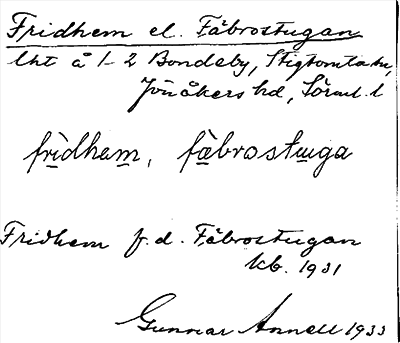 Fridhem el. Fäbrostugan
lht å 1-2 Bondeby, Stigtomta sn,
Jönåkers hd, Sörml. l
fridhem, fäbrostuga
Fridhem f.d. Fäbrostugan
kb. 1931
Gunnar Annell 1933